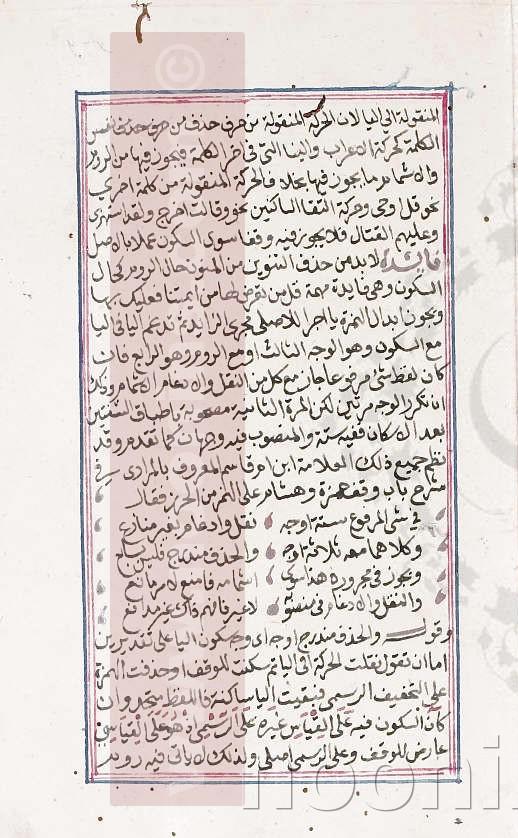 المنقولة الى اليا لان الحركة المنقولة من حرف حذف من حرف حذف من نفس
الكلمة كحركة الاعراب والبنا التى فى اخر الكلمة فيجوز فيها من الروم
والاشمام ما يجوز فيها بخلاف الحركة المنقولة من كلمة اخرى
نحو قل اوحى وحركة التقا الساكنين نحو وقالت اخرج ولقد استهزى
وعليهم القتال فلا يجوز فيه وقفا سوى السكون عملا بالاصل
فايدة لابد من حذف التنوين من المنون حال الروم كحال
السكون وهى فايدة مهمة قل من تعرض لها من ايمتنا فعليك بها
ويجوز ابدال الهمزة يا اجرا للاصلى مجرى الزايد ثم تدغم اليا فى اليا
مع السكون وهو الوجه الثالث او مع الروم وهو الرابع فان
كان لفظ شى مرفوعا جاز مع كل من النقل والادغام الاشمام وذلك
ان تكرر الوجه مرتين لكن المرة الثانية مصحوبة باطباق الشفتين
بعد الاسكان ففيه ستة والمنصوب فيه وجهان كما تقدم وقد
نظم جميع ذلك العلامة ابن ام قاسم المعروف بالمرادى فى
شرح باب وقف حمزة وهشام على الهمز من الحرز فقال
فى شى المرفوع ستة اوجه نقل وادغام بغير منازع
وكلاهما معه ثلاثة اوجه والحذف مندرج فليس بسابع
ويجوز فى مجروره هذا سوى اشمامه فامنع لامر مانع
والنقل والادغام فى منصوبه لا غير فافهم ذاك غير مدافع
وقوله والحذف مندرج اوجه اى وجه سكون اليا على تقديرين
اما ان تقول نقلت الحركة الى اليا ثم سكنت للوقف او حذفت الهمزة
على التخفيف الرسمى فبقيت اليا ساكنة فاللفظ متحد وان
كان السكون فيه على القياس غيره على الرسمى اذ هو على القياسى
عارض للوقف وعلى الرسمى اصلى ولذلك لا ياتى فيه روم
nooni